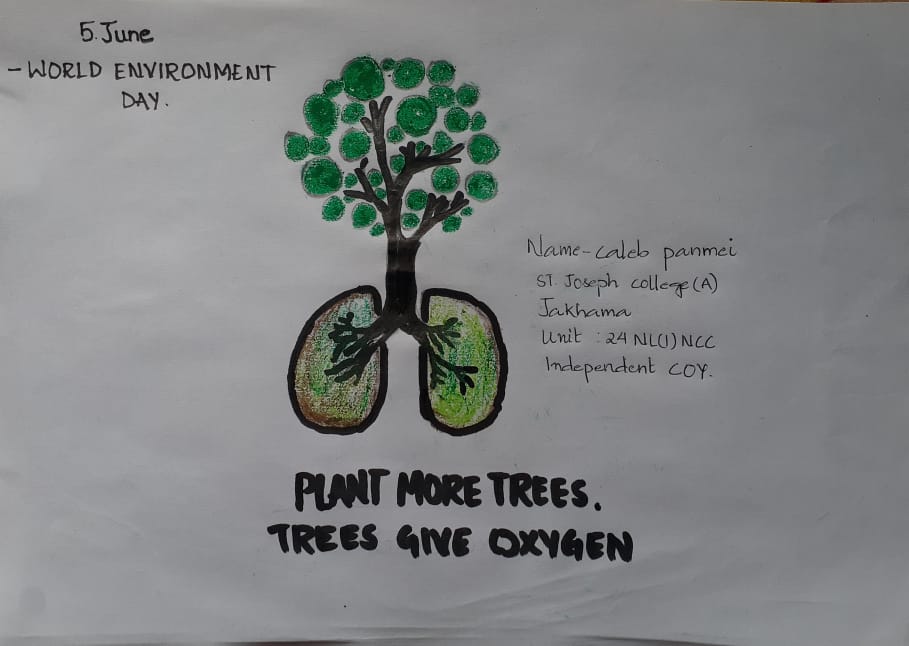 5. June
- WORLD ENVIRONMENT
DAY.
Name - caleb panmei
ST. Joseph college (A)
Jakhama
Unit : 24 NL(1) NCC
Independent COY.
PLANT MORE TREES.
TREES GIVE OXYGEN